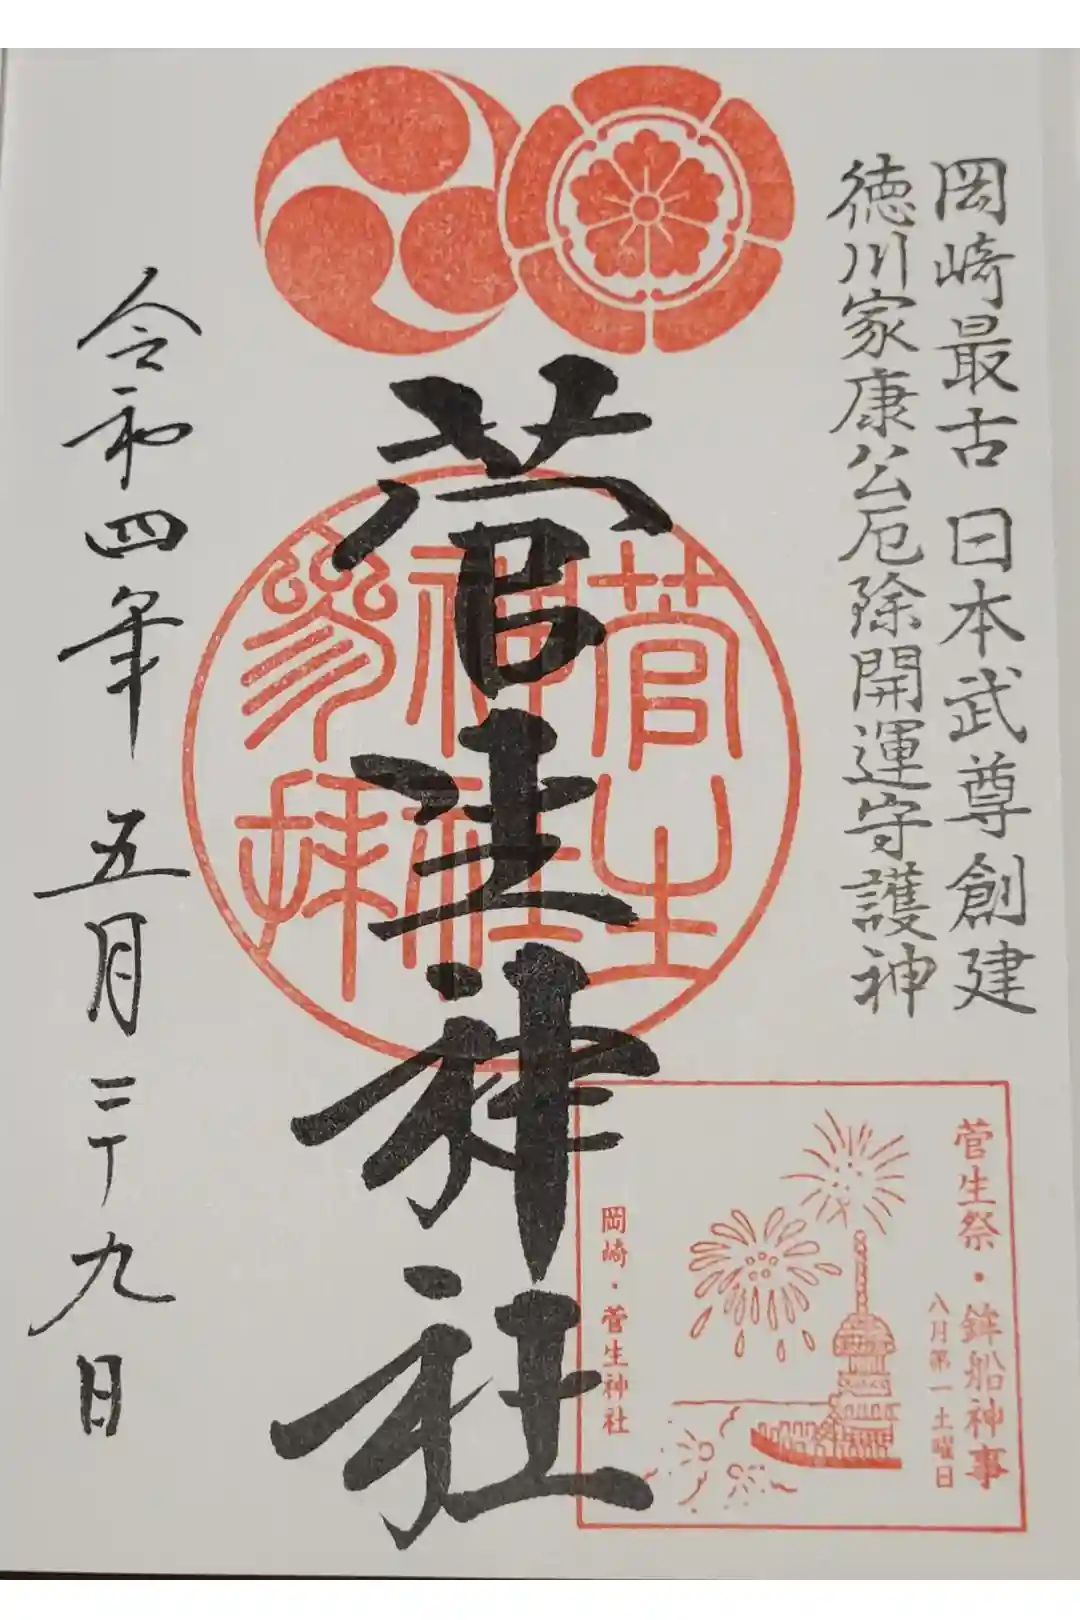 岡崎最古 日本武尊創建
徳川家康公厄除開運守護神
菅生神社
菅生
神社
参拝
菅生祭・鉾船神事
八月第一土曜日
岡崎・菅生神社
令和四年 五月二十九日